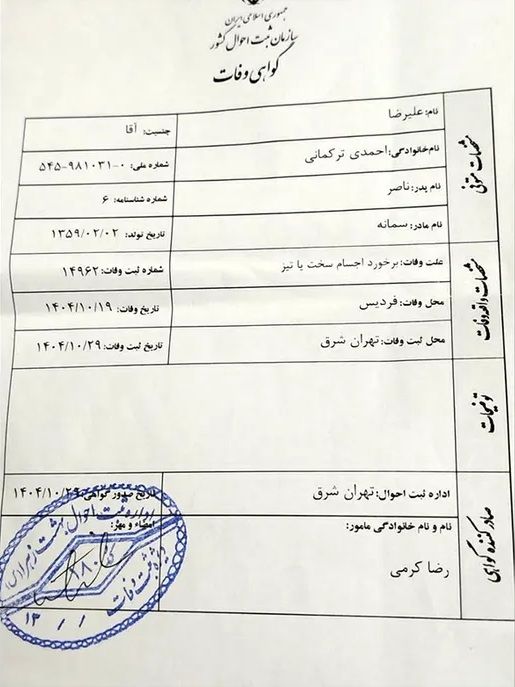 جمهوری اسلامی ایران
سازمان ثبت احوال کشور
گواهی وفات
مشخصات متوفی
نام: علیرضا
جنسیت: آقا
نام خانوادگی: احمدی ترکمانی
شماره ملی: ۰-۹۸۱۰۳۱-۵۴۵
نام پدر: ناصر
شماره شناسنامه: ۶
نام مادر: سمانه
تاریخ تولد: ۱۳۵۹/۰۲/۰۲
مشخصات واقعه وفات
علت وفات: برخورد اجسام سخت یا تیز
شماره ثبت وفات: ۱۴۹۶۲
محل وفات: فردیس
تاریخ وفات: ۱۴۰۴/۱۰/۱۹
محل ثبت وفات: تهران شرق
تاریخ ثبت وفات: ۱۴۰۴/۱۰/۲۹
توضیحات
صادر کننده گواهی
اداره ثبت احوال: تهران شرق
تاریخ صدور گواهی: ۱۴۰۴/۱۰/۲۹
نام و نام خانوادگی مامور:
امضاء و مهر:
رضا کرمی
اداره ثبت احوال بهشت زهرا
۱۸۰
ثبت وفات
۱۳ / /